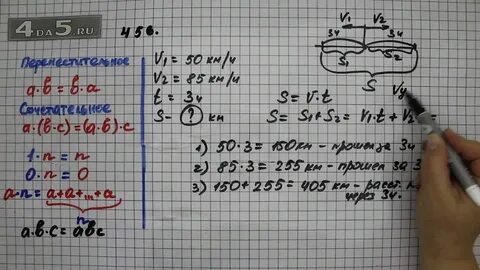 4 DA 5.RU
456.
Переместительное
a·b = b·a
Сочетательное
a·(b·c) = (a·b)·c
1·n = n
0·n = 0
a·n = a+a+...+a
n
a·b·c = abc
V1 = 50 км/ч
V2 = 85 км/ч
t = 3ч
S - ? км
V1 V2
3ч 3ч
S1 S2
S
Vу
S = V·t
S = S1 + S2 = V1·t + V2 =
1) 50·3 = 150км - прошел за 3ч
2) 85·3 = 255 км - прошел за 3
3) 150 + 255 = 405 км - расст.
через 3ч.